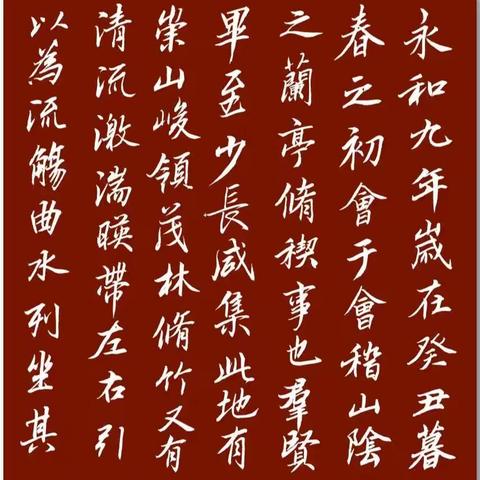 永和九年歲在癸丑暮
春之初會于會稽山陰
之蘭亭脩稧事也羣賢
畢至少長咸集此地有
崇山峻領茂林脩竹又有
清流激湍暎帶左右引
以為流觴曲水列坐其